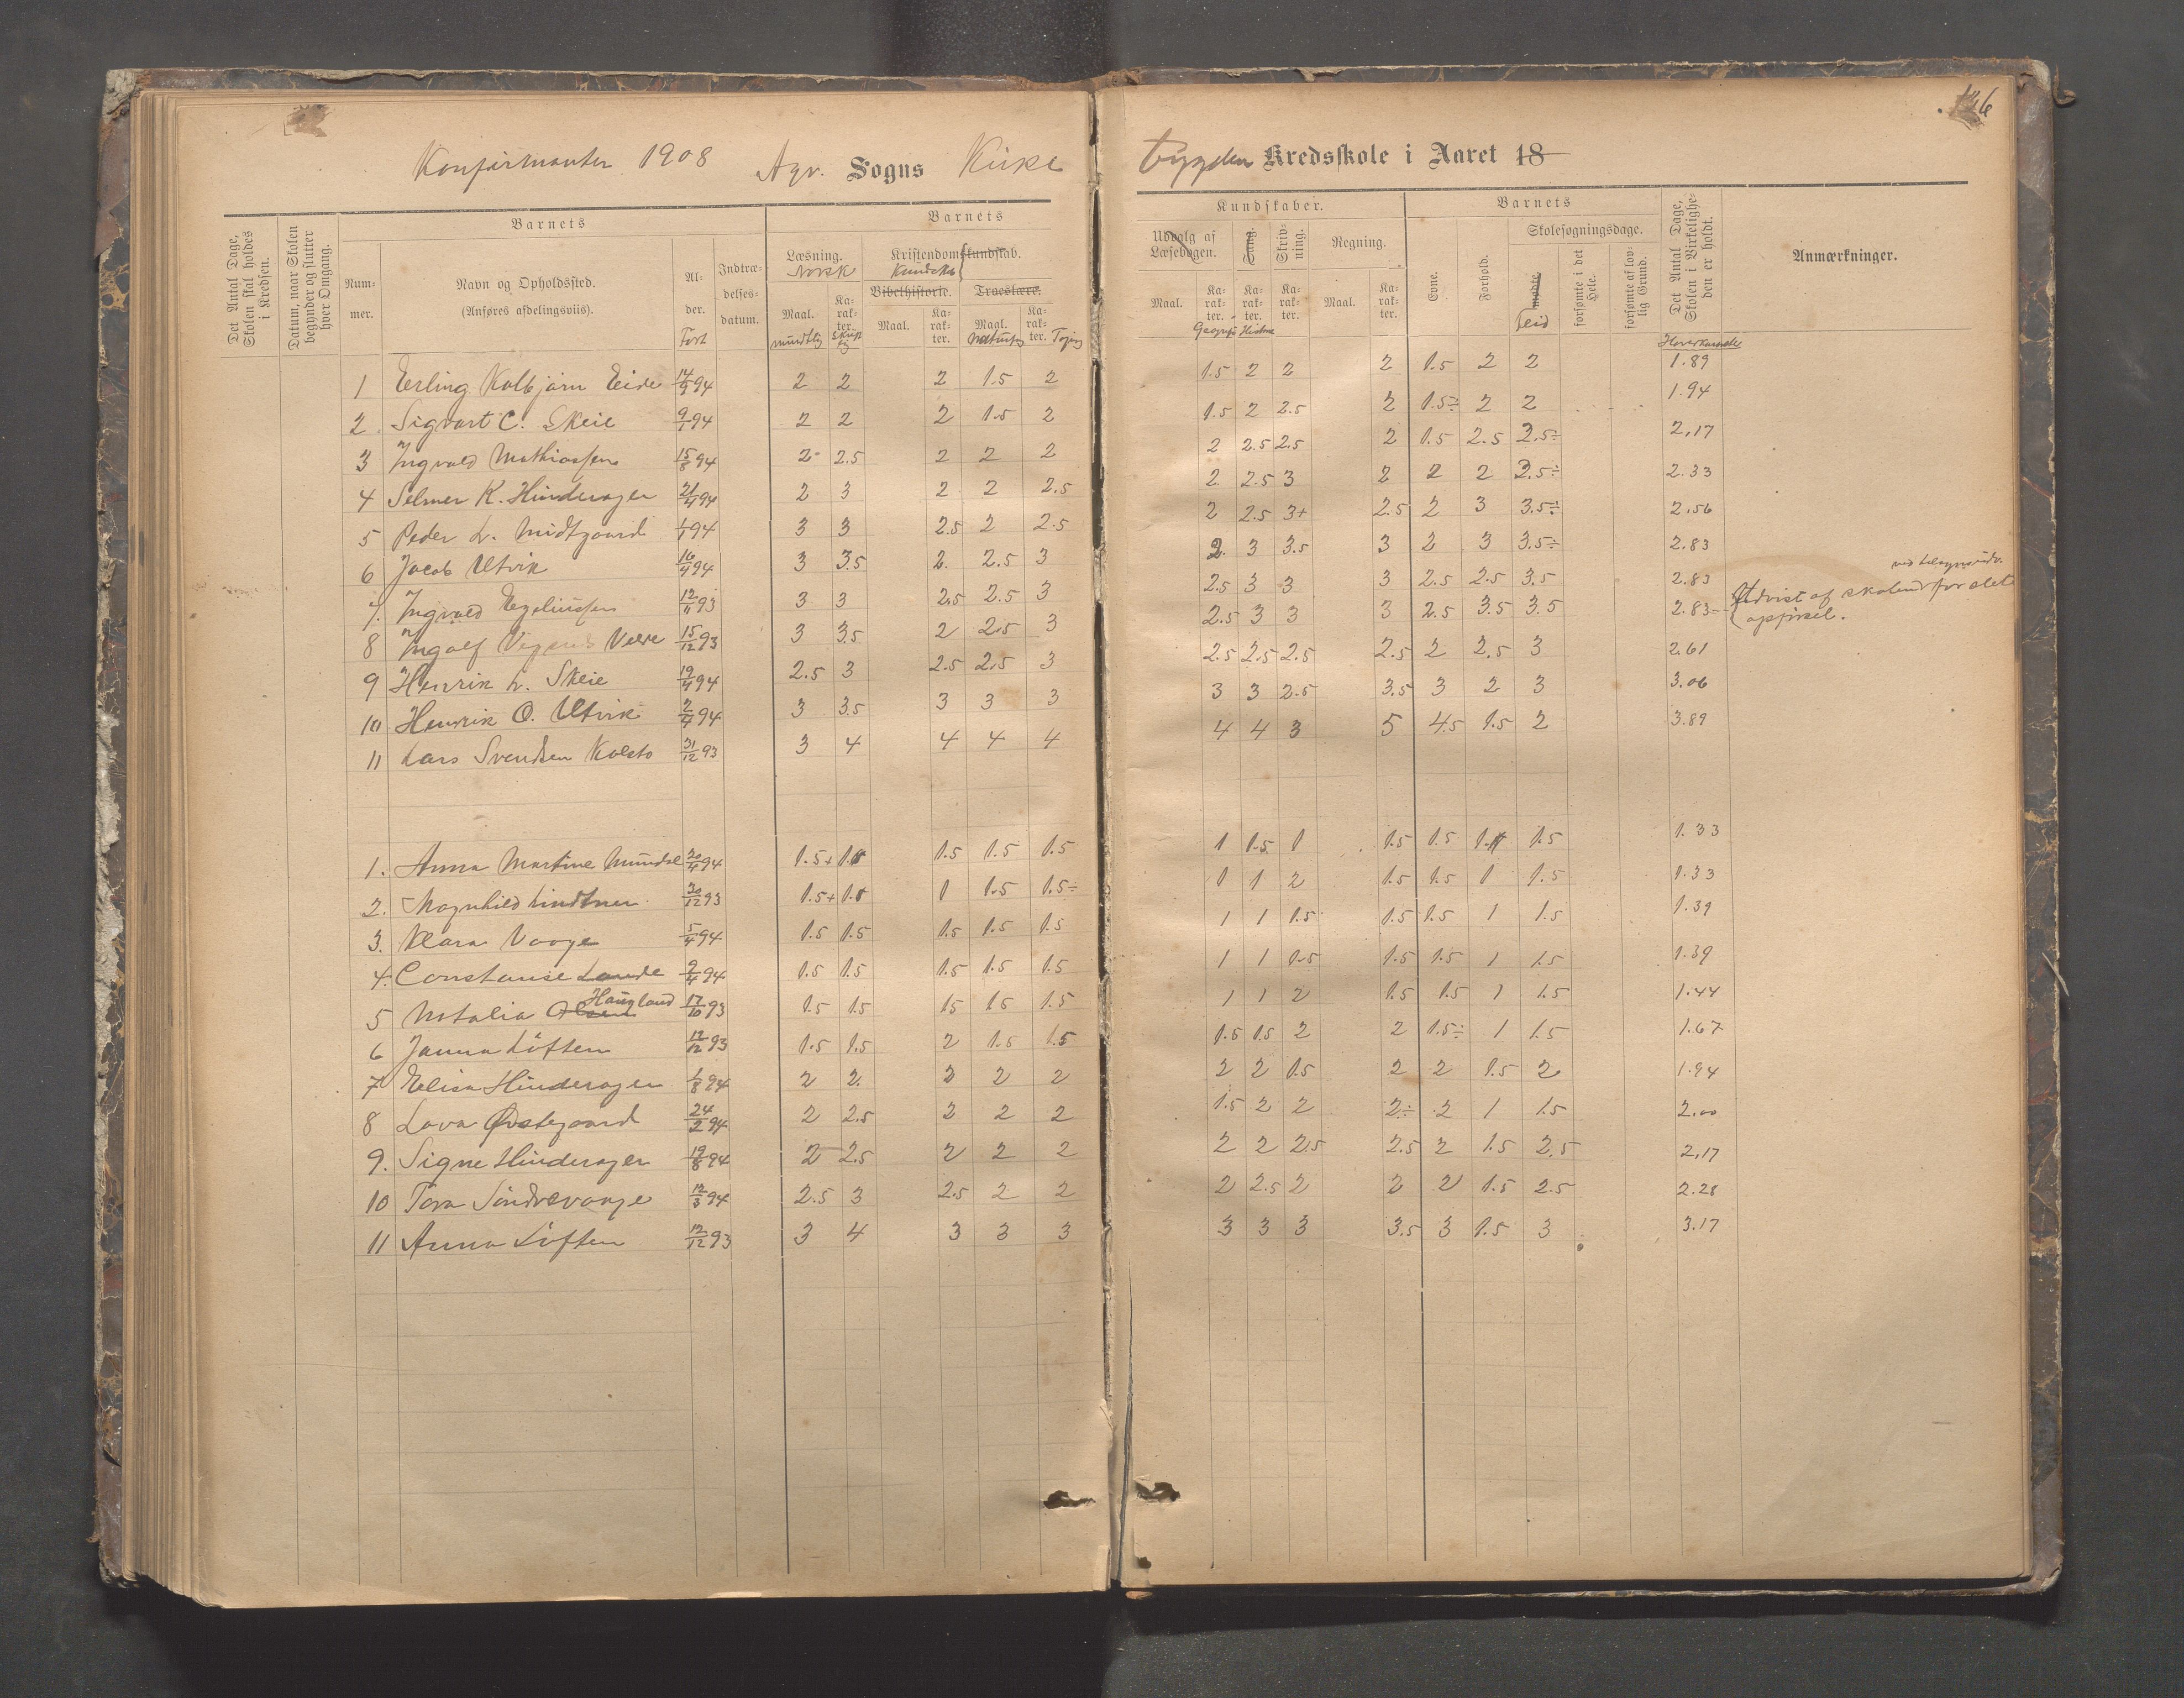 126
Konfirmanter 1908 Agv. Sogns Kirke
bygden Kredsskole i Aaret 18
Det Antal Dage, Skolen skal holdes i Kredsen.
Datum, naar Skolen begynder og slutter hver Omgang.
Barnets
Nummer.
Navn og Opholdssted.
(Anføres afdelingsviis).
Alder.
Født
Indtrædelsesdatum.
Barnets
Læsning.
Norsk
Maal.
mundtlig
Karakter.
Skriftlig
Kristendomskundskab.
Kundska
Bibelhistorie.
Troeslære.
Maal.
Karakter.
Maal.
Naturfag
Karakter.
Tegning
Kundskaber.
Udvalg af Læsebogen.
Sang.
Skrivning.
Regning.
Maal.
Karakter.
Geografi
Karakter.
Historie
Karakter.
Maal.
Karakter.
Barnets
Evne.
Forhold.
Skolesøgningsdage.
mødte
Flid
forsømte i det Hele.
forsømte af lovlig Grund.
Det Antal Dage, Skolen i Virkeligheden er holdt.
Hovedkarakter
Anmærkninger.
1 Erling Kolbjørn Eide 14/9 94 2 2 2 1.5 2 1.5 2 2 2 1.5 2 2 1.89
2 Sigvart C. Skeie 9/1 94 2 2 2 1.5 2 1.5 2 2.5 2 1.5÷ 2 2 1.94
3 Ingvald Mathiassen 15/8 94 2 2.5 2 2 2 2 2.5 2.5 2 1.5 2.5 2.5÷ 2.17
4 Selmer K. Hinderager 21/4 94 2 3 2 2 2.5 2 2.5 3 2 2 2 2.5÷ 2.33
5 Peder L. Midtgaard 94 3 3 2.5 2 2.5 2 2.5 3+ 2.5 2 3 3.5÷ 2.56
6 Jacob Utvik 16/4 94 3 3.5 2. 2.5 3 2. 3 3.5 3 2 3 3.5÷ 2.83
7. Ingvald Egeliussen 12/11 93 3 3 2.5 2.5 3 2.5 3 3 3 2.5 2.5 3.5 2.83
8 Ingolf Velde 15/12 93 3 3.5 2 2.5 3 2.5 3 3 3 2.5 3.5 3.5 2.83 Udvist af skolen for slet
opførsel.
9 Henrik L. Skeie 19/4 94 2.5 3 2.5 2.5 3 2.5 2.5 2.5 2.5 2 2.5 3 2.61
10 Henrik O. Utvik 2/4 94 3 3.5 3 3 3 3 3 2.5 3.5 3 2 3 3.06
11 Lars Svendsen Kolsto 31/12 93 3 4 4 4 4 4 4 3 5 4.5 1.5 2 3.89
1. Anna Martine Mundal 20/4 94 1.5+ 1.5 1.5 1.5 1.5 1 1.5 1 1.5 1.5 1 1.5 1.33
2. Magnhild Lindtner 30/12 93 1.5+ 1.5 1 1.5 1.5÷ 1 1 2 1.5 1.5 1 1.5 1.33
3. Klara Vaage 5/4 94 1.5 1.5 1.5 1.5 1.5 1 1 1.5 1.5 1.5 1 1.5 1.39
4. Constanse Lande 9/4 94 1.5 1.5 1.5 1.5 1.5 1 1 1.5 1.5 1.5 1 1.5 1.39
5 Natalia Olsen Haugland 17/10 93 1.5 1.5 1.5 1.5 1.5 1 1 2 1.5 1.5 1 1.5 1.44
6 Janna Liften 12/12 93 1.5 1.5 2 1.5 1.5 1.5 1.5 2 2 1.5÷ 1 1.5 1.67
7 Elisa Hinderager 1/8 94 2 2. 2 2 2 2 2 1.5 2 2 1.5 2 1.94
8 Lava Østegaard 24/2 94 2 2.5 2 2 2 1.5 2 2 2÷ 2 1 1.5 2.00
9. Signe Hinderager 19/8 94 2 2.5 2 2 2 2 2 2.5 2.5 2 1.5 2.5 2.17
10 Tora Søndrevaage 12/3 94 2.5 3 2.5 2 2 2 2.5 2 2 2 1.5 2.5 2.28
11 Anna Liften 12/12 93 3 4 3 3 3 3 3 3 3.5 3 1.5 3 3.17